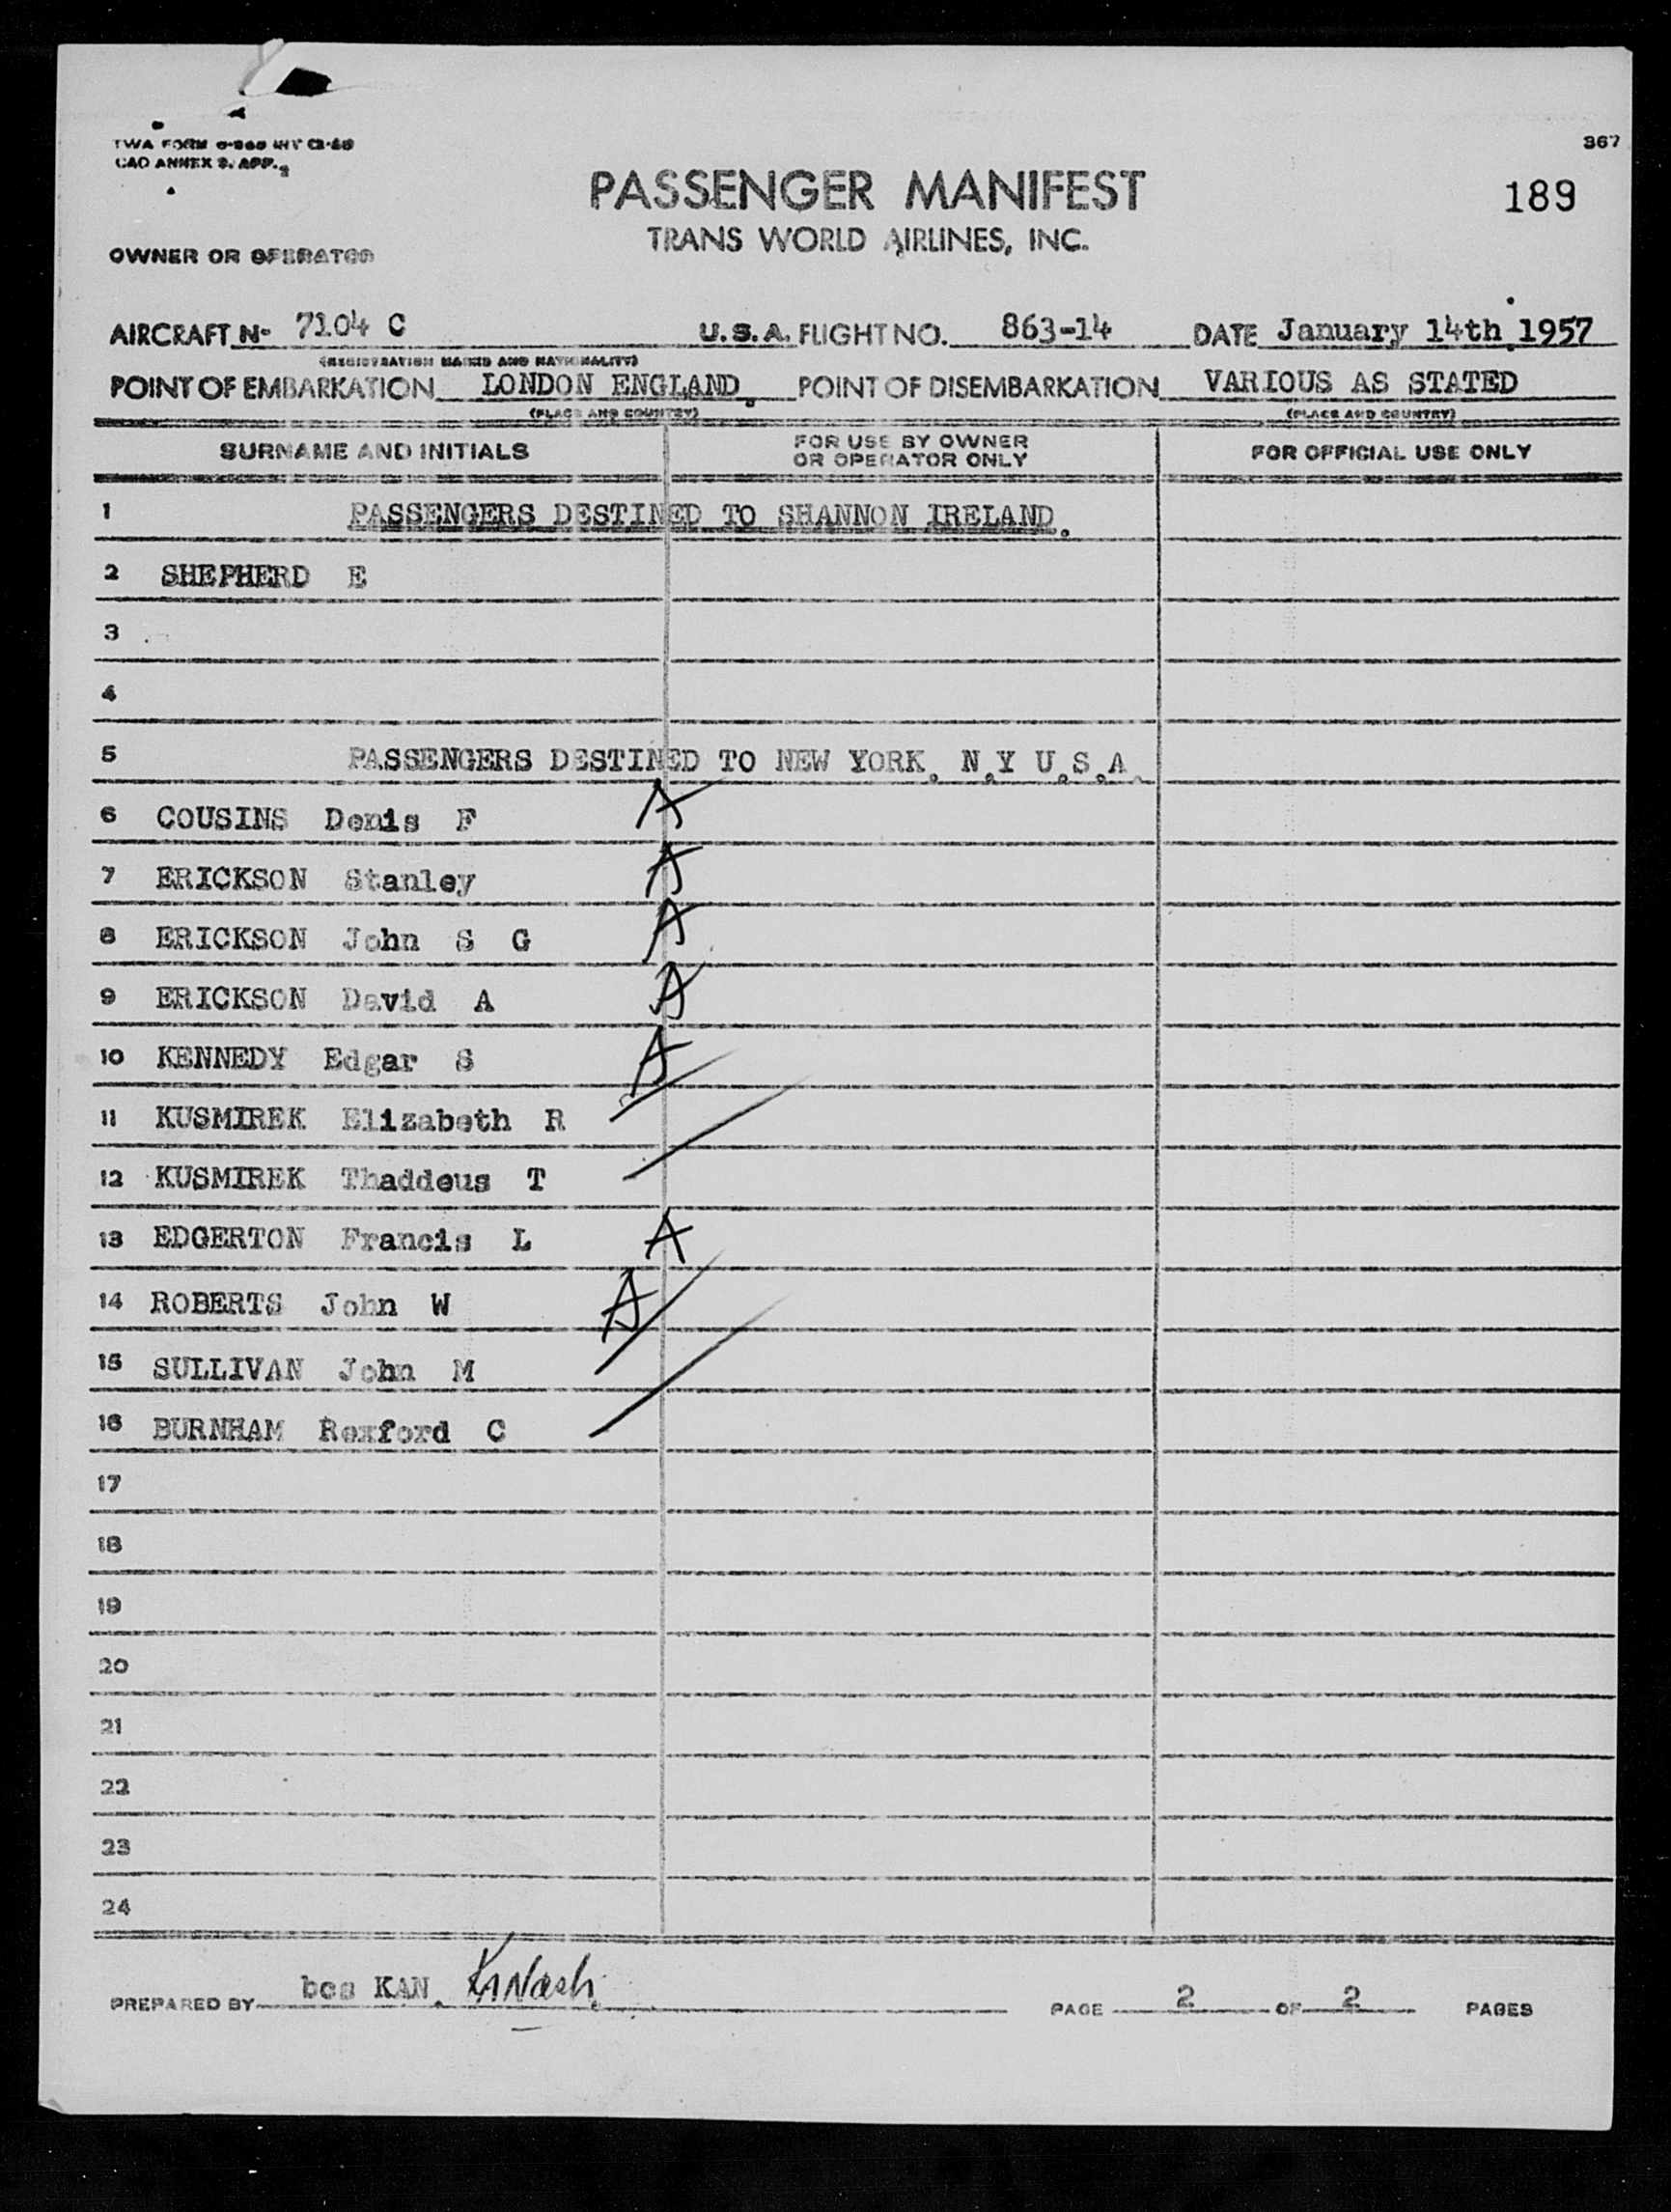 367
CAO ANNEX 9. APP. 2
PASSENGER MANIFEST
189
TRANS WORLD AIRLINES, INC.
OWNER OR OPERATOR
AIRCRAFT No 7104 C U.S.A. FLIGHT NO. 863-14 DATE January 14th 1957
(REGISTRATION MARKS AND NATIONALITY)
POINT OF EMBARKATION LONDON ENGLAND. POINT OF DISEMBARKATION VARIOUS AS STATED
(PLACE AND COUNTRY) (PLACE AND COUNTRY)
SURNAME AND INITIALS FOR USE BY OWNER OR OPERATOR ONLY FOR OFFICIAL USE ONLY
1 PASSENGERS DESTINED TO SHANNON IRELAND.
2 SHEPHERD E
3
4
5 PASSENGERS DESTINED TO NEW YORK. N.Y U.S.A.
6 COUSINS Denis F A
7 ERICKSON Stanley A
8 ERICKSON John S G A
9 ERICKSON David A A
10 KENNEDY Edgar S A
11 KUSMIREK Elizabeth R
12 KUSMIREK Thaddeus T
13 EDGERTON Francis L A
14 ROBERTS John W A
15 SULLIVAN John M
16 BURNHAM Rexford C
17
18
19
20
21
22
23
24
PREPARED BY bcs KAN. KANash. PAGE 2 OF 2 PAGES